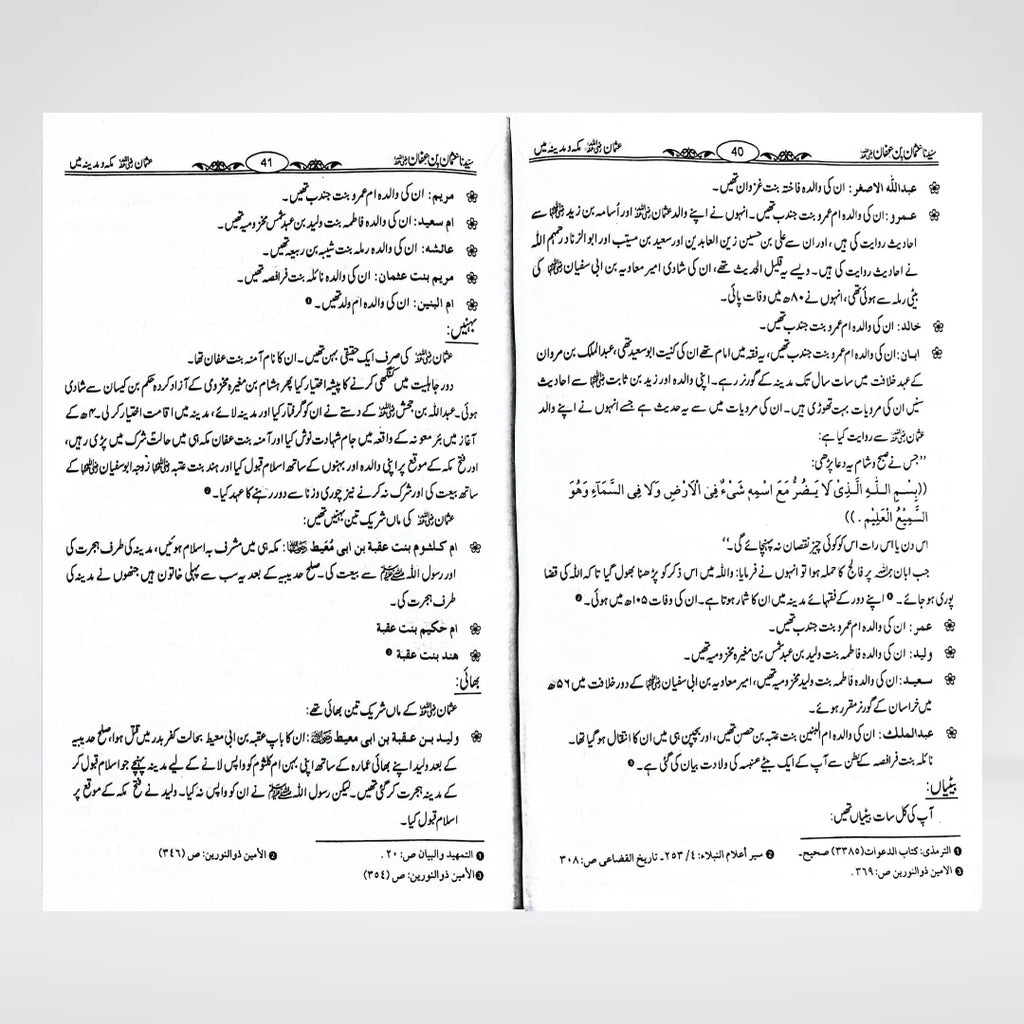 سیدنا عثمان بن عفان رضی اللہ عنہ 40 عثمان رضی اللہ عنہ مکہ و مدینہ میں
عبداللہ الاصغر: ان کی والدہ فاختہ بنت غزوان تھیں۔
عمرو: ان کی والدہ ام عمرو بنت جندب تھیں۔ انہوں نے اپنے والد عثمان رضی اللہ عنہ اور اُسامہ بن زید رضی اللہ عنہما سے
احادیث روایت کی ہیں، اور ان سے علی بن حسین زین العابدین اور سعید بن مسیّب اور ابوالزناد رحمہم اللہ
نے احادیث روایت کی ہیں۔ ویسے یہ قلیل الحدیث تھے، ان کی شادی امیر معاویہ بن ابی سفیان رضی اللہ عنہما کی
بیٹی رملہ سے ہوئی تھی، انہوں نے ۸۰ھ میں وفات پائی۔
خالد: ان کی والدہ ام عمرو بنت جندب تھیں۔
ابان: ان کی والدہ ام عمرو بنت جندب تھیں، یہ فقہ میں امام تھے ان کی کنیت ابوسعید تھی، عبدالملک بن مروان
کے عہد خلافت میں سات سال تک مدینہ کے گورنر رہے۔ اپنی والدہ اور زید بن ثابت رضی اللہ عنہ سے احادیث
سنیں ان کی مرویات بہت تھوڑی ہیں۔ ان کی مرویات میں سے یہ حدیث ہے جسے انہوں نے اپنے والد
عثمان رضی اللہ عنہ سے روایت کیا ہے:
’’جس نے صبح و شام یہ دعا پڑھی:
((بِسْمِ اللّٰهِ الَّذِیْ لَا یَضُرُّ مَعَ اسْمِهٖ شَیْءٌ فِی الْاَرْضِ وَلَا فِی السَّمَآءِ وَهُوَ
السَّمِیْعُ الْعَلِیْمِ .))
اس دن یا اس رات اس کو کوئی چیز نقصان نہ پہنچائے گی۔‘‘
جب ابان رحمہ اللہ پر فالج کا حملہ ہوا تو انہوں نے فرمایا: واللہ میں اس ذکر کو پڑھنا بھول گیا تاکہ اللہ کی قضا
پوری ہو جائے۔ ❶ اپنے دور کے فقہائے مدینہ میں ان کا شمار ہوتا ہے۔ ان کی وفات ۱۰۵ھ میں ہوئی۔ ❷
عمر: ان کی والدہ ام عمرو بنت جندب تھیں۔
ولید: ان کی والدہ فاطمہ بنت ولید بن عبدشمس بن مغیرہ مخزومیہ تھیں۔
سعید: ان کی والدہ فاطمہ بنت ولید مخزومیہ تھیں، امیر معاویہ بن ابی سفیان رضی اللہ عنہما کے دور خلافت میں ۵۶ھ
میں خراسان کے گورنر مقرر ہوئے۔
عبدالملک: ان کی والدہ ام البنین بنت عتبہ بن حصن تھیں، اور بچپن ہی میں ان کا انتقال ہو گیا تھا۔
نائلہ بنت فرافصہ کے بطن سے آپ کے ایک بیٹے عنبسہ کی ولادت بیان کی گئی ہے۔ ❸
بیٹیاں:
آپ کی کل سات بیٹیاں تھیں:
❶ الترمذی: کتاب الدعوات (۳۳۸۵) صحیح۔ ❷ سیر أعلام النبلاء: ۴/ ۲۵۳۔ تاریخ القضاعی ص: ۳۰۸
❸ الامین ذوالنورین ص: ۳۶۹.
سیدنا عثمان بن عفان رضی اللہ عنہ 41 عثمان رضی اللہ عنہ مکہ و مدینہ میں
مریم: ان کی والدہ ام عمرو بنت جندب تھیں۔
ام سعید: ان کی والدہ فاطمہ بنت ولید بن عبدشمس مخزومیہ تھیں۔
عائشہ: ان کی والدہ رملہ بنت شیبہ بن ربیعہ تھیں۔
مریم بنت عثمان: ان کی والدہ نائلہ بنت فرافصہ تھیں۔
ام البنین: ان کی والدہ ام ولد تھیں۔ ❶
بہنیں:
عثمان رضی اللہ عنہ کی صرف ایک حقیقی بہن تھیں۔ ان کا نام آمنہ بنت عفان تھا۔
دور جاہلیت میں کنگھی کرنے کا پیشہ اختیار کیا پھر ہشام بن مغیرہ مخزومی کے آزاد کردہ حکم بن کیسان سے شادی
ہوئی۔ عبداللہ بن جحش رضی اللہ عنہ کے دستے نے ان کو گرفتار کیا اور مدینہ لائے، مدینہ میں اقامت اختیار کر لی۔ ۴ھ کے
آغاز میں بئر معونہ کے واقعہ میں جام شہادت نوش کیا اور آمنہ بنت عفان مکہ ہی میں حالت شرک میں پڑی رہیں،
اور فتح مکہ کے موقع پر اپنی والدہ اور بہنوں کے ساتھ اسلام قبول کیا اور ہند بنت عتبہ رضی اللہ عنہا زوجہ ابوسفیان رضی اللہ عنہ کے
ساتھ بیعت کی اور شرک نہ کرنے نیز چوری وزنا سے دور رہنے کا عہد کیا۔ ❷
عثمان رضی اللہ عنہ کی ماں شریک تین بہنیں تھیں:
ام کلثوم بنت عقبة بن ابی مُعَیط رضی اللہ عنہا: مکہ ہی میں مشرف بہ اسلام ہوئیں، مدینہ کی طرف ہجرت کی
اور رسول اللہ ﷺ سے بیعت کی۔ صلح حدیبیہ کے بعد یہ سب سے پہلی خاتون ہیں جنھوں نے مدینہ کی
طرف ہجرت کی۔
ام حکیم بنت عقبة
هند بنت عقبة ❸
بھائی:
عثمان رضی اللہ عنہ کے ماں شریک تین بھائی تھے:
ولید بن عقبة بن ابی معیط رضی اللہ عنہ: ان کا باپ عقبہ بن ابی معیط بحالت کفر بدر میں قتل ہوا، صلح حدیبیہ
کے بعد ولید اپنے بھائی عمارہ کے ساتھ اپنی بہن ام کلثوم کو واپس لانے کے لیے مدینہ پہنچے جو اسلام قبول کر
کے مدینہ ہجرت کر گئی تھیں۔ لیکن رسول اللہ ﷺ نے ان کو واپس نہ کیا۔ ولید نے فتح مکہ کے موقع پر
اسلام قبول کیا۔
❶ التمهید والبیان ص: ۲۰. ❷ الأمین ذوالنورین: ص (۳۴۶)
❸ الأمین ذوالنورین: ص (۳۵۴)